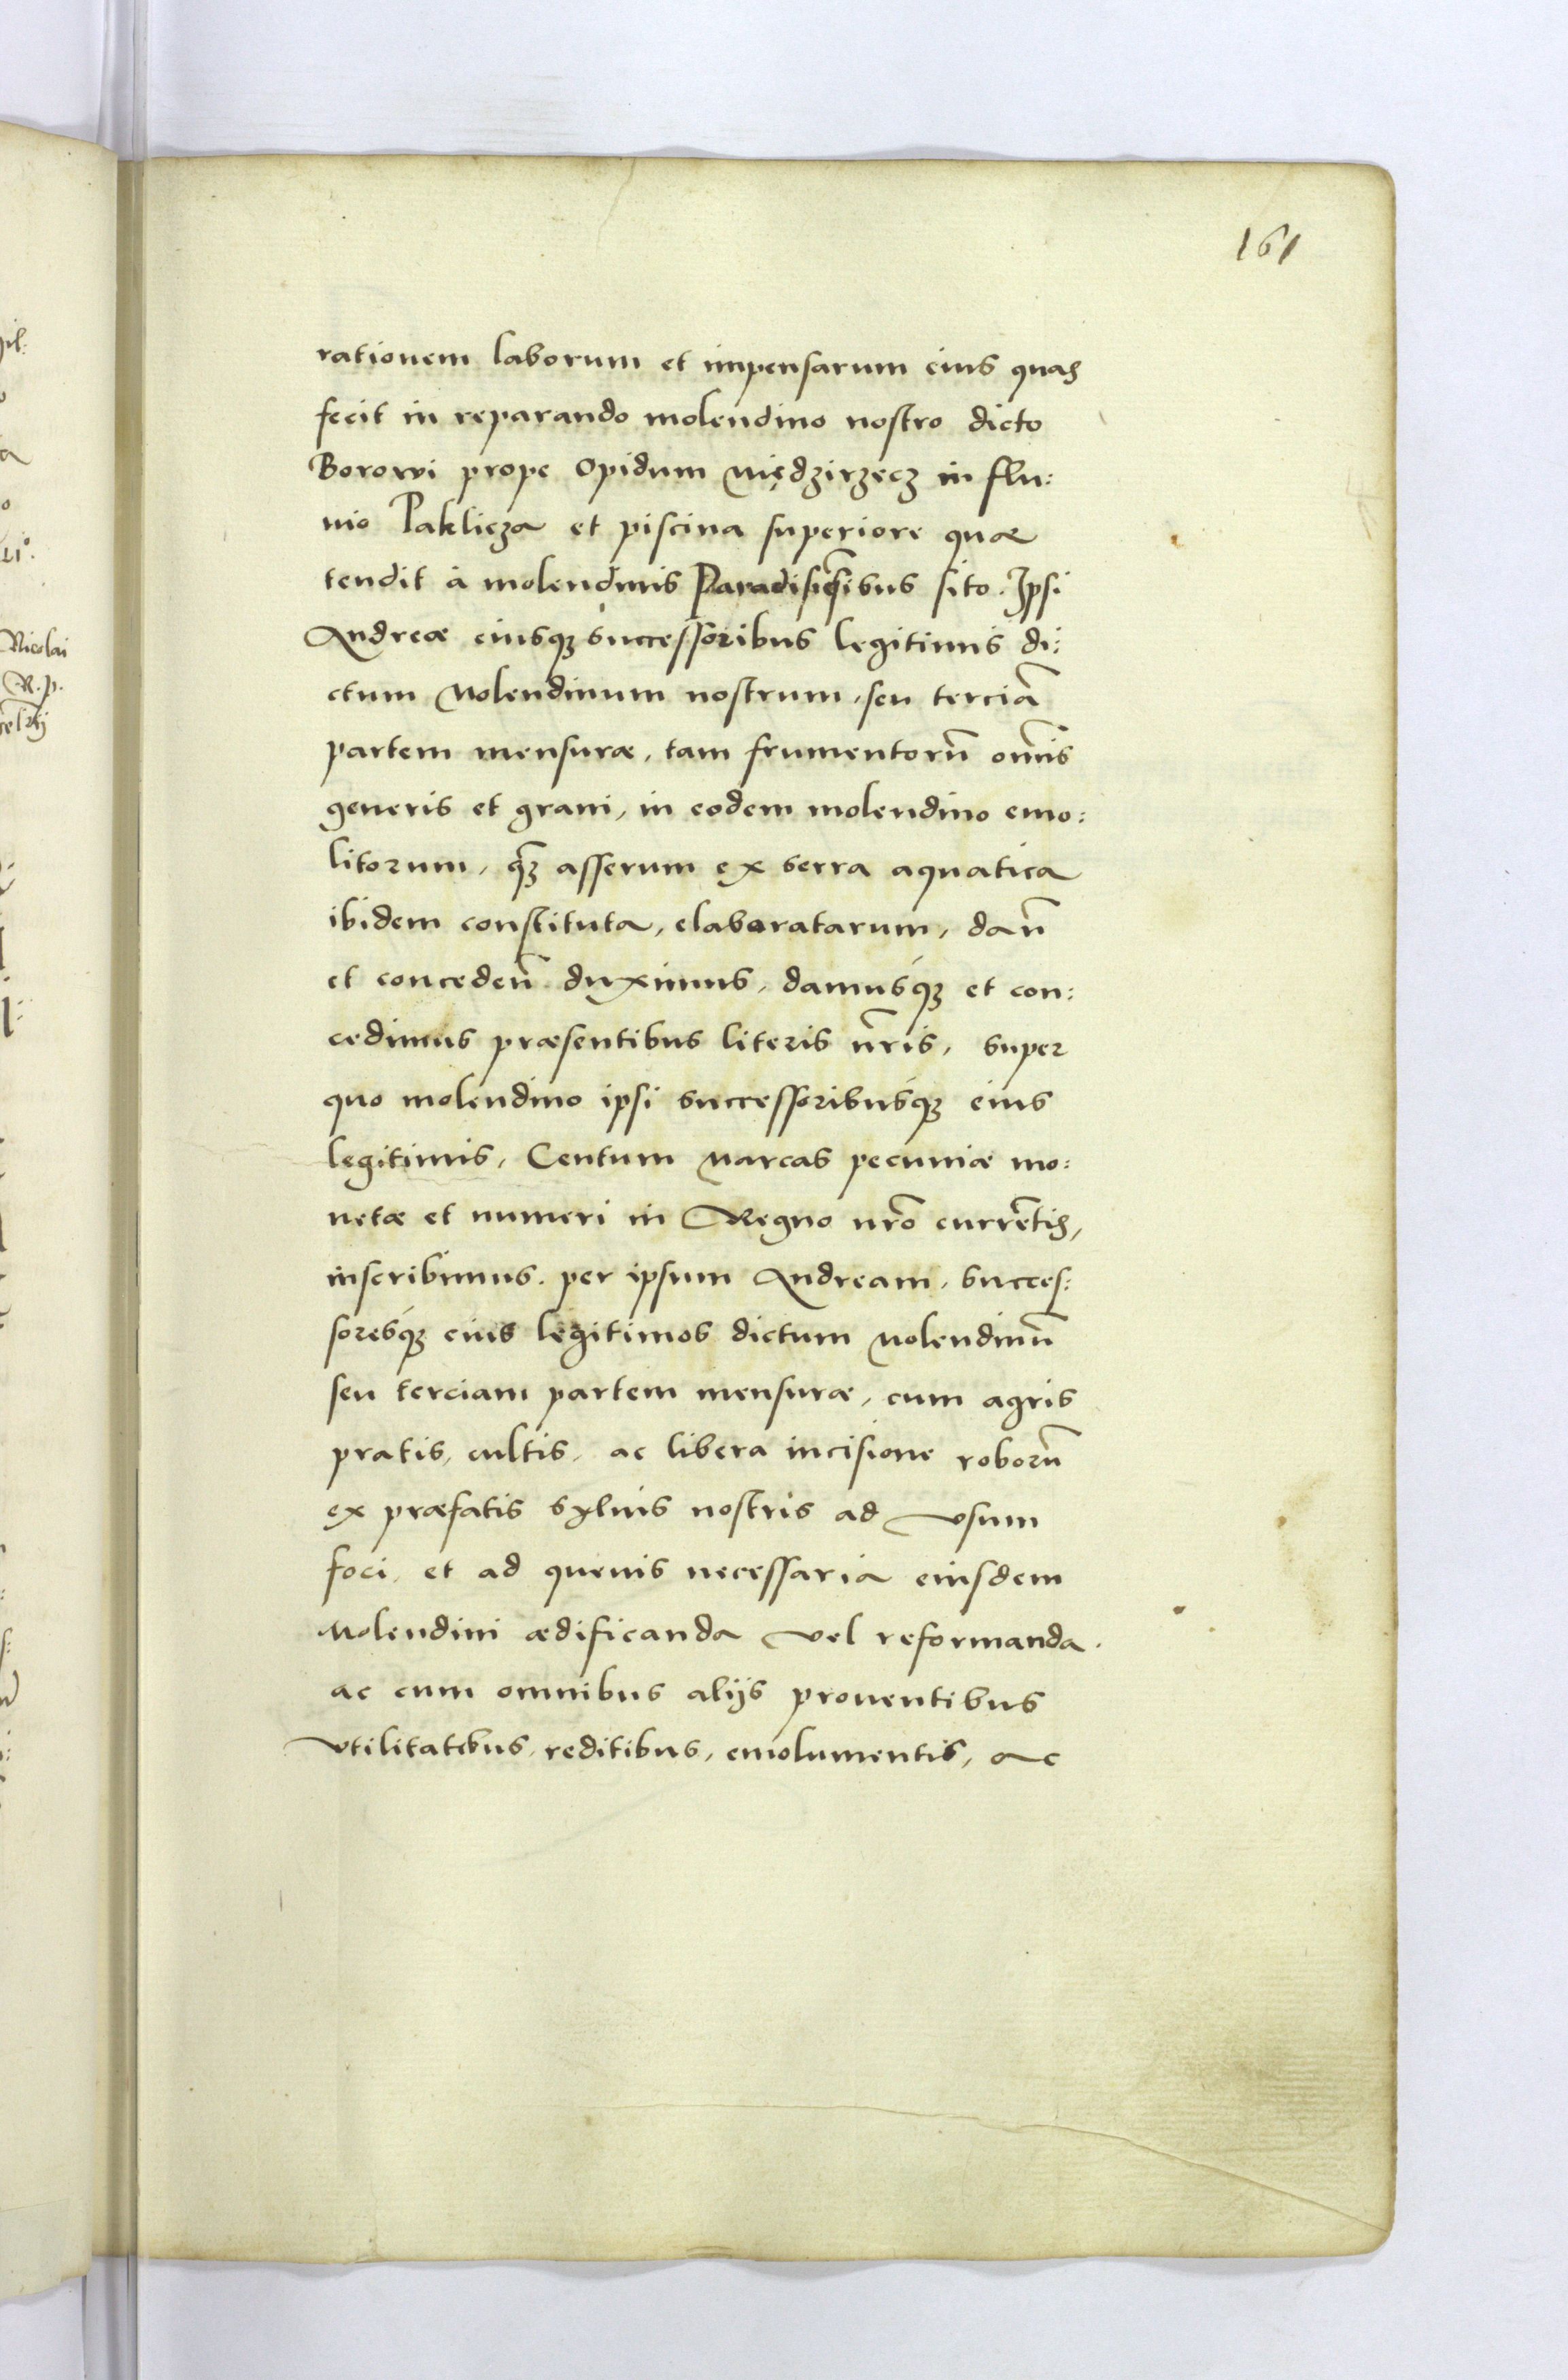 161
rationem laborum et impensarum eius quas
fecit in reparando molendino nostro dicto
Borowi prope Opidum Międzirzecz in flu:
uio Paklicza et piscina superiore quæ
tendit à molendinis Paradisiẽsibus sito. Ipsi
Andreæ eiusqꝫ successoribus legitimis di:
ctum Molendinum nostrum, seu terciã
partem mensuræ, tam frumentorũ om̃is
generis et grani, in eodem molendino emo:
litorum, q̃ꝫ asserum ex serra aquatica
ibidem constituta, elaboratarum, dañ
et concedeñ duximus, damusq́ꝫ et con:
cedimus præsentibus literis ñris, super
quo molendino ipsi successoribusq́ꝫ eius
legitimis, Centum Marcas pecuniæ mo:
netæ et numeri in Regno nr̃o currẽtis,
inscribimus. per ipsum Andream, succes:
soresq́ꝫ eius legitimos dictum Molendinũ
seu terciam partem mensuræ, cum agris
pratis, cultis, ac libera incisione roborũ
ex præfatis syluis nostris ad vsum
foci, et ad queuis necessaria eiusdem
Molendini ædificanda vel reformanda.
ac cum omnibus alijs prouentibus
vtilitatibus, reditibus, emolumentis, ac
Nicolai
R. p.